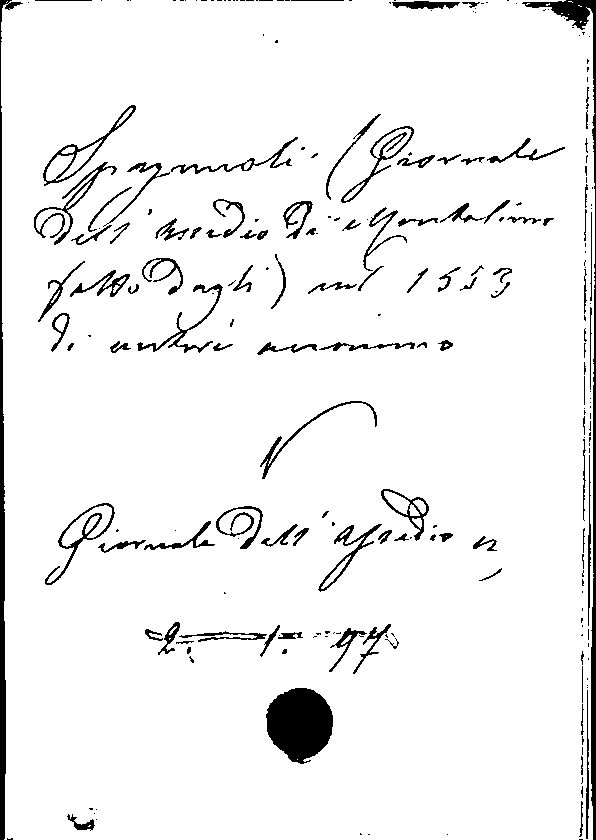 Spagnuoli. (Giornale
dell'assedio di Montalcino
fatto dagli) nel 1553
di autore anonimo
V
Giornale dell'assedio
2. 1. 97